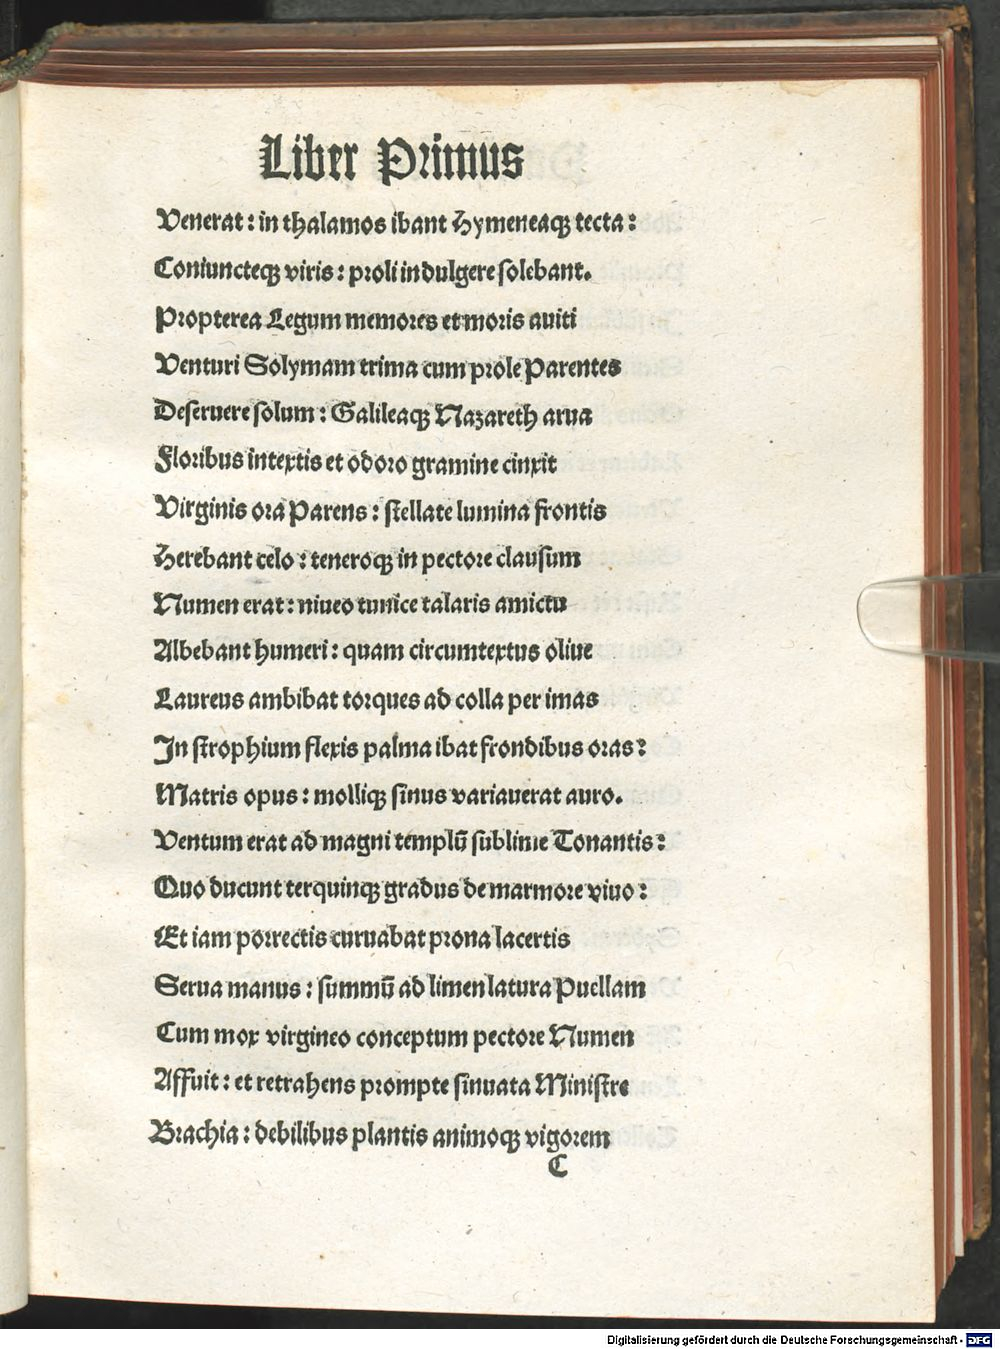 Liber Primus
Venerat: in thalamos ibant Hymeneaqꝫ tecta:
Coniuncteqꝫ viris: proli indulgere solebant.
Propterea Legum memores et moris auiti
Venturi Solymam trima cum prole Parentes
Deseruere solum: Galileaqꝫ Nazareth arua
Floribus intextis et odoro gramine cinxit
Virginis ora Parens: stellate lumina frontis
Herebant celo: teneroqꝫ in pectore clausum
Numen erat: niueo tunice talaris amictu
Albebant humeri: quam circumtextus oliue
Laureus ambibat torques ad colla per imas
In strophium flexis palma ibat frondibus oras:
Matris opus: molliqꝫ sinus variauerat auro.
Ventum erat ad magni templū sublime Tonantis:
Quo ducunt terquinqꝫ gradus de marmore viuo:
Et iam porrectis curuabat prona lacertis
Serua manus: summū ad limen latura Puellam
Cum mox virgineo conceptum pectore Numen
Affuit: et retrahens prompte sinuata Ministre
Brachia: debilibus plantis animoqꝫ vigorem
C
Digitalisierung gefördert durch die Deutsche Forschungsgemeinschaft - DFG